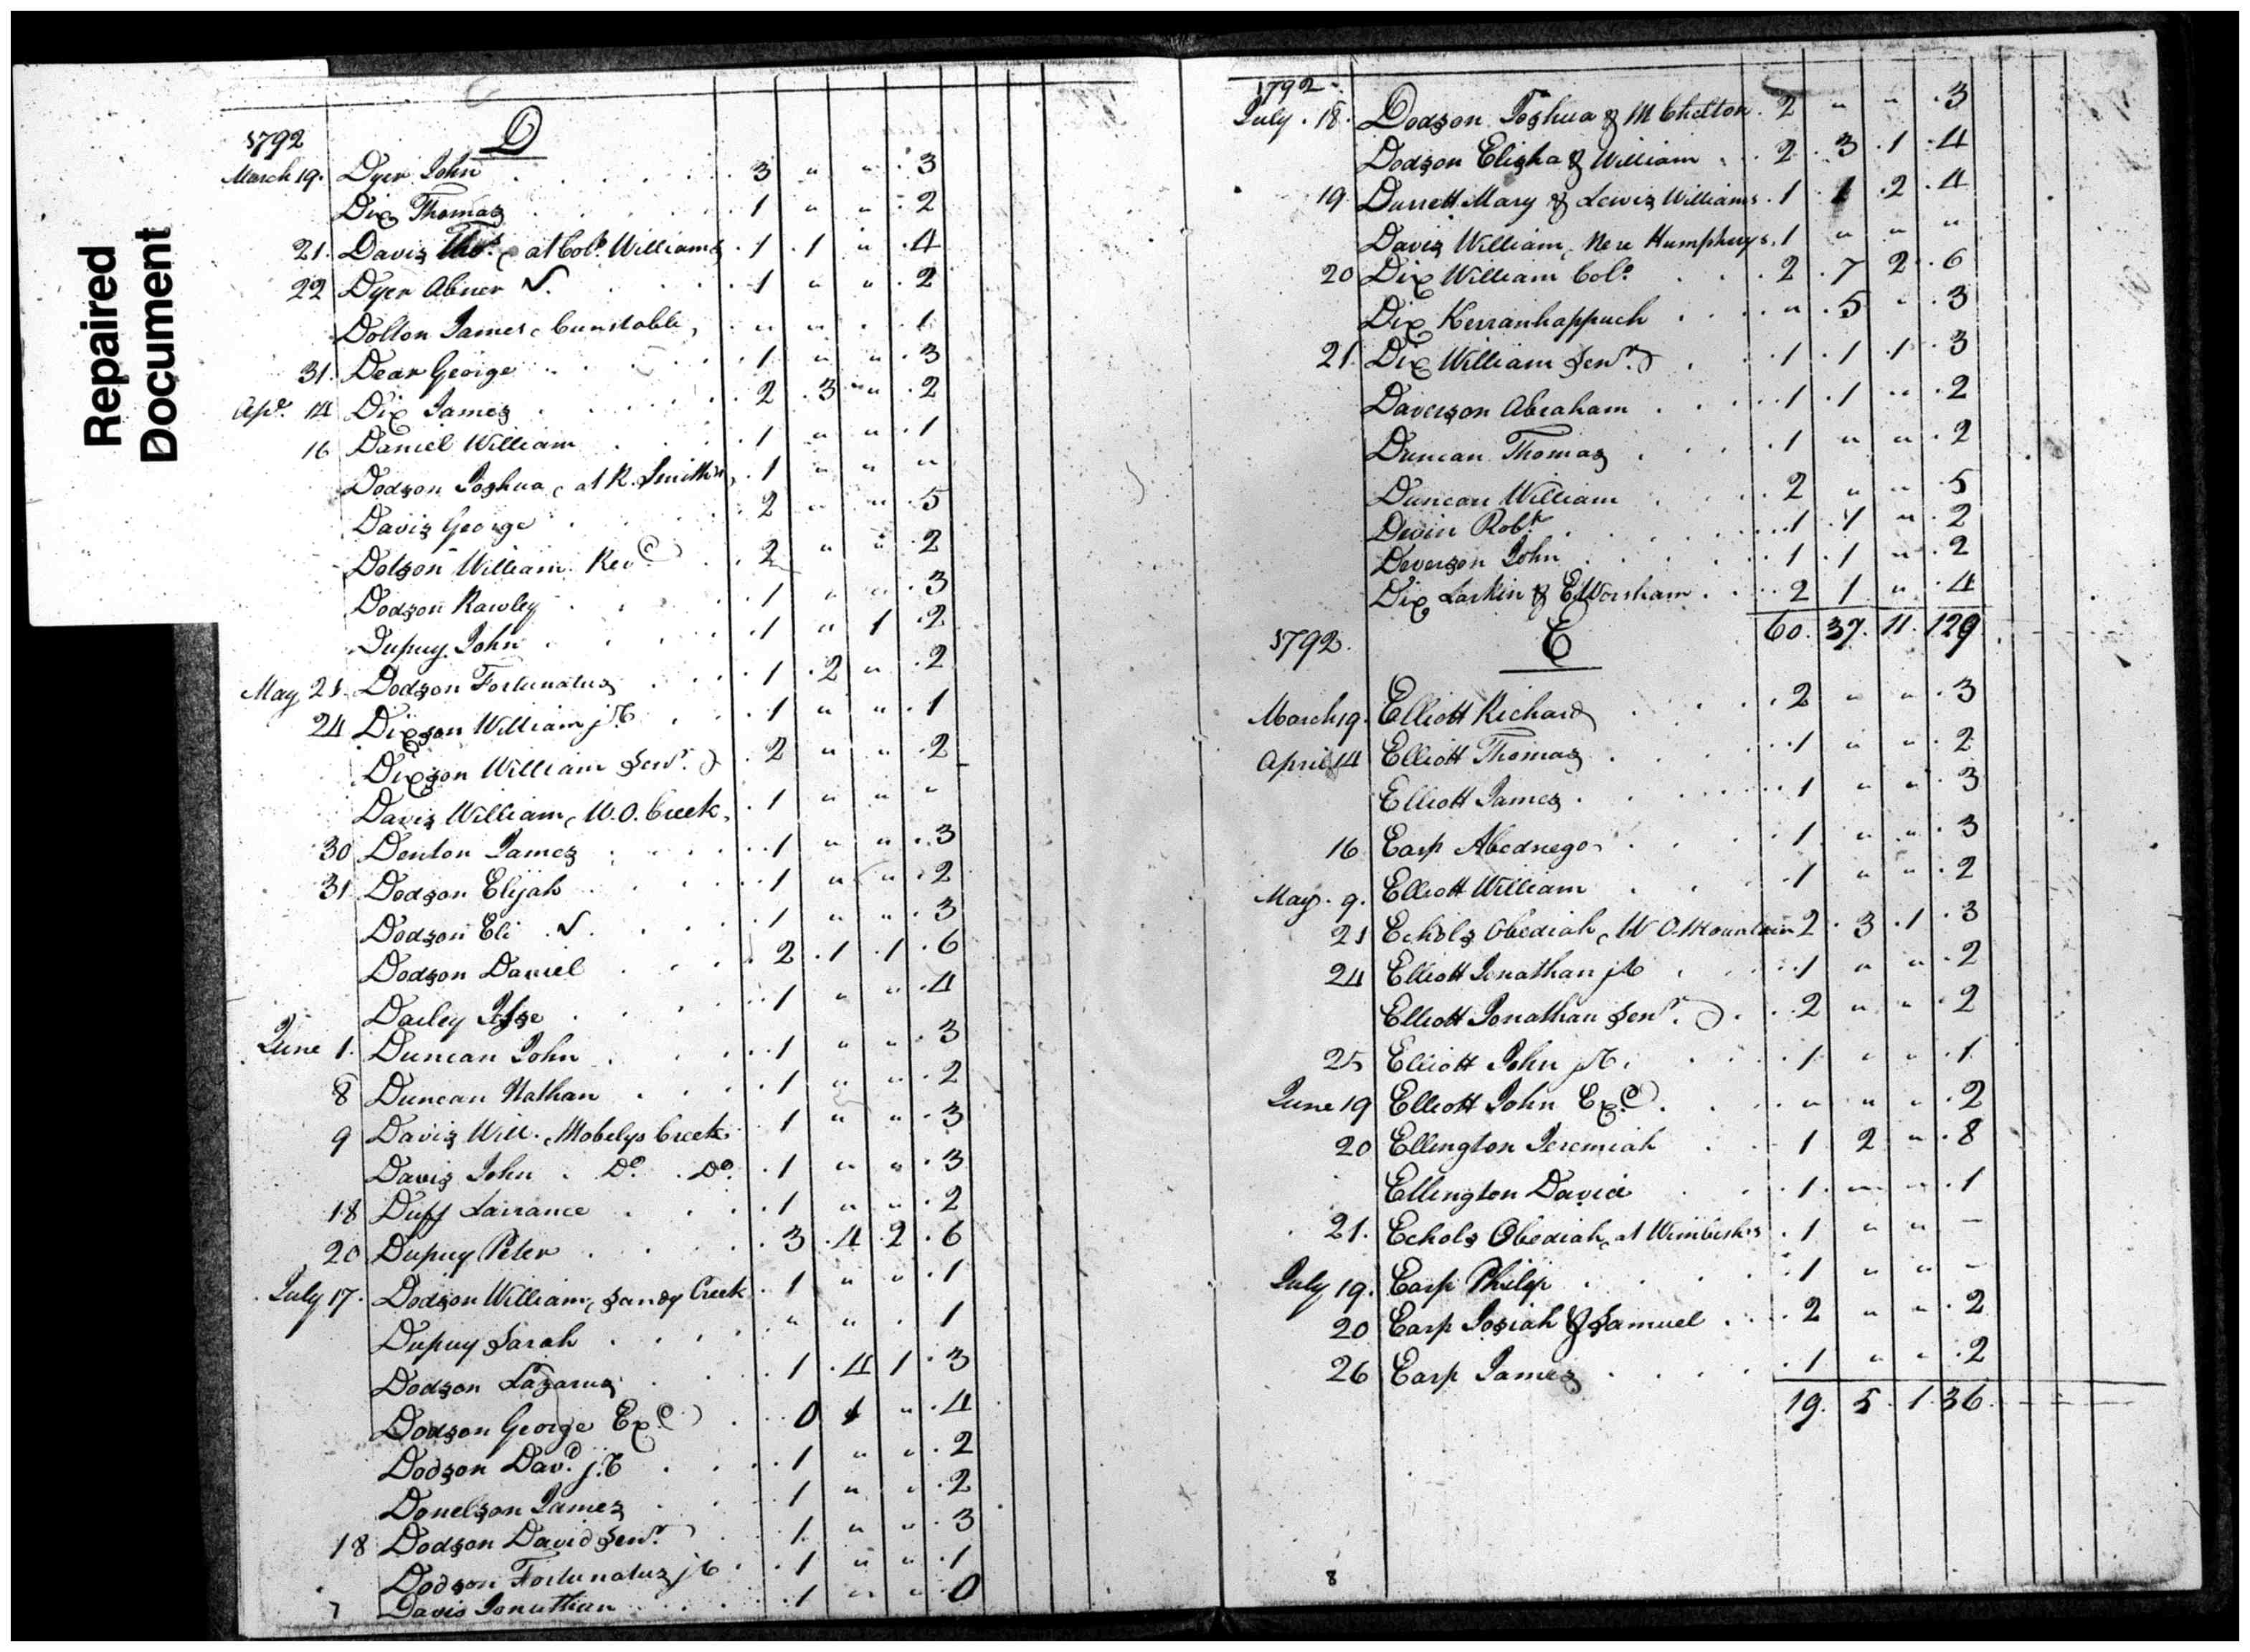 Repaired
Document
D
1792
March 19. Dyer John 3 " " 3
Dix Thomas 1 " " 2
21. Davis Thos. at Colo. Williams 1 1 " 4
22 Dyer Abner 1 " " 2
Dolton James, Cunstable, " " . 1
31. Dear George 1 " " 3
Apl. 14 Dix James 2 3 " 2
16 Daniel William 1 " " 1
Dodson Joshua, at R. Smith's, 1 " " "
Davis George 2 " " 5
Dotson William Revd. 2 " " 2
Dodson Rawley 1 " " 3
Dupuy John 1 " 1 2
May 21. Dodson Fortunatus 1 2 " 2
24 Dixson William jr 1 " " 1
Dixson William Senr. 2 " " 2
Davis William, W.O. Creek, 1 " " "
30 Denton James 1 " " 3
31 Dodson Elijah 1 " " 2
Dodson Eli 1 " " 3
Dodson Daniel 2 1 1 6
Dailey 1 " " 4
June 1. Duncan John 1 " " 3
8 Duncan Nathan 1 " " 2
9 Davis Will. Mobelys Creek 1 " " 3
Davis John Do. Do. 1 " " 3
18 Duff Lairance 1 " " 2
20 Dupuy Peter 3 4 2 6
July 17. Dodson William, Sandy Creek 1 " " 1
Dupuy Sarah " " . 1
Dodson Lazarus 1 4 1 3
Dodson George Exd. 0 1 " 4
Dodson Davd. jr 1 " " 2
Donelson James 1 " " 2
18 Dodson David Senr. 1 " " 3
Dodson Fortunatus jr 1 " " 1
Davis Jonathan 1 " " 0
7
1792
July 18. Dodson Joshua & M Chelton 2 " " 3
Dodson Elisha & William 2 3 1 4
19 Durrett Mary & Lewis Williams 1 1 2 4
Davis William, Nere Humphreys, 1 " " "
20 Dix William Colo. 2 7 2 6
Dix Kerranhappuch " 5 " 3
21 Dix William Senr. 1 1 1 3
Daverson Abraham 1 1 " 2
Duncan Thomas 1 " " 2
Duncan William 2 " " 5
Devin Robt. 1 1 " 2
Deverson John 1 1 " 2
Dix Larkin & E Worsham 2 1 " 4
60. 37. 11. 129
1792. E
March 19. Elliott Richard 2 " " 3
April 14 Elliott Thomas 1 " " 2
Elliott James 1 " " 3
16 Earp Abednego 1 " " 3
May 9. Elliott William 1 " " 2
21 Echols Obediah, W O Mountain 2 3 1 3
24 Elliott Jonathan jr 1 " " 2
Elliott Jonathan Senr. 2 " " 2
25 Elliott John jr. 1 " " 1
June 19 Elliott John Exd. " " " 2
20 Ellington Jeremiah 1 2 " 8
Ellington David 1 " " 1
21. Echols Obediah, at Wimbish's 1 " " —
July 19. Earp Philip 1 " " —
20 Earp Josiah & Samuel 2 " " 2
26 Earp James 1 " " 2
19. 5. 1. 36.
8